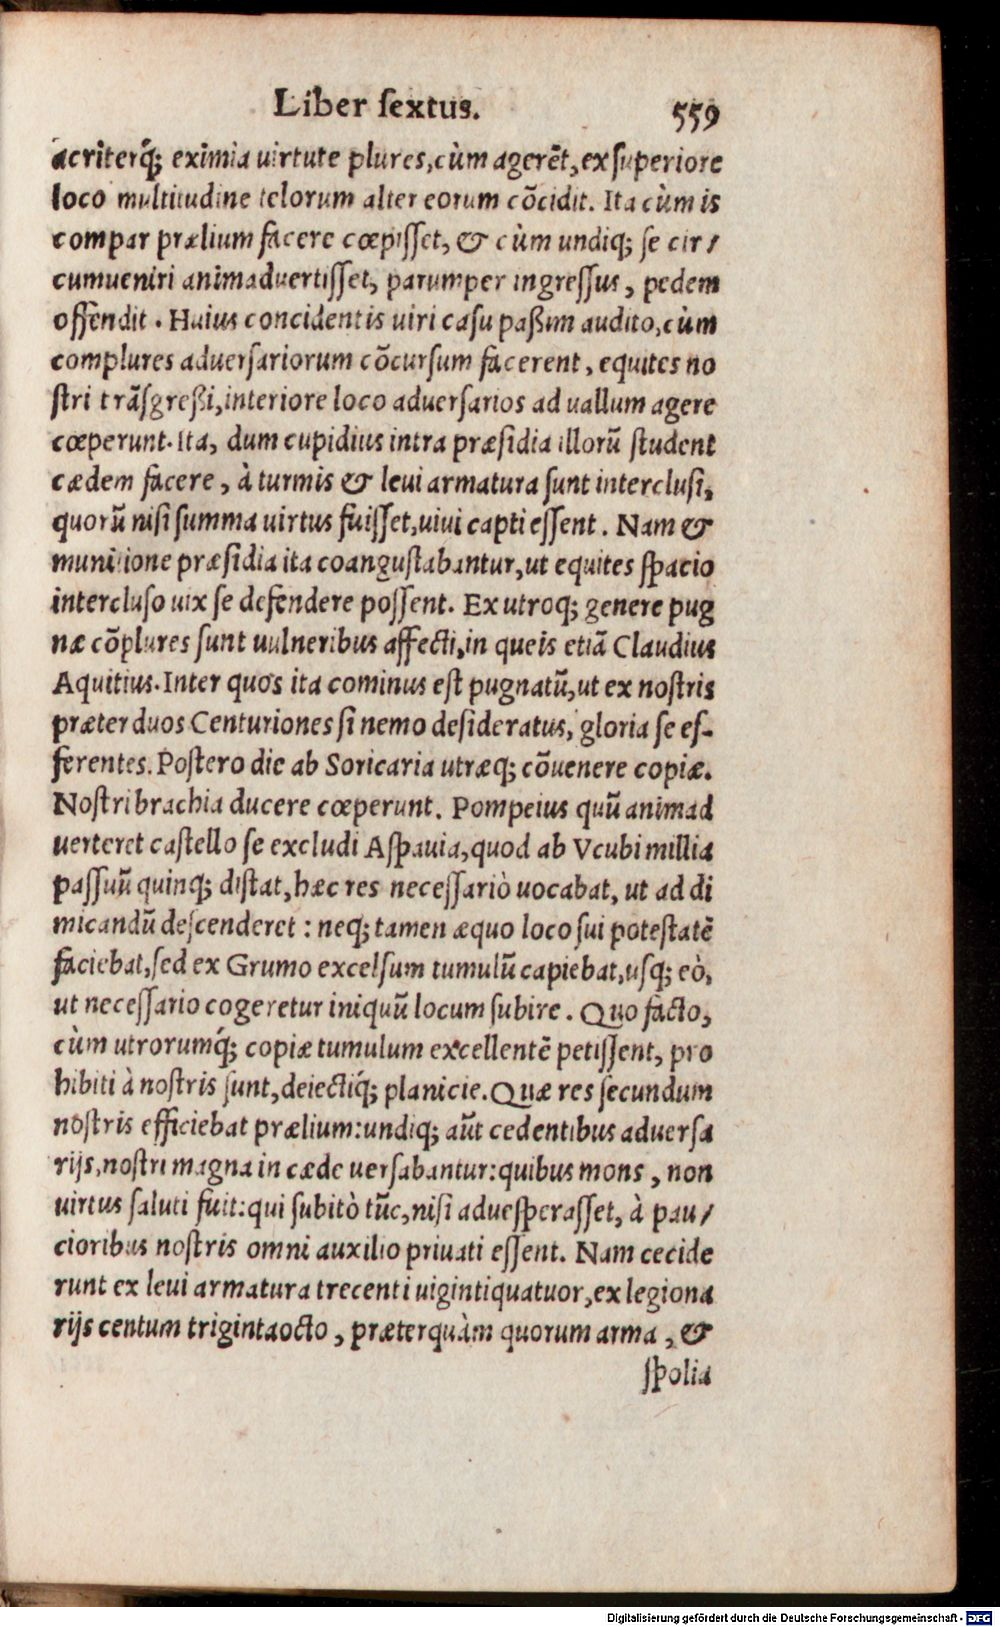 Liber sextus. 559
acriterq́; eximia uirtute plures, cùm agerẽt, ex superiore
loco multitudine telorum alter eorum cõcidit. Ita cùm is
compar prælium facere cœpisset, & cùm undiq; se cir/
cumueniri animaduertisset, parumper ingressus, pedem
offendit. Huius concidentis uiri casu paßim audito, cùm
complures aduersariorum cõcursum facerent, equites no
stri trãsgreßi, interiore loco aduersarios ad uallum agere
cœperunt. Ita, dum cupidius intra præsidia illorũ student
cædem facere, à turmis & leui armatura sunt interclusi,
quorũ nisi summa uirtus fuisset, uiui capti essent. Nam &
munitione præsidia ita coangustabantur, ut equites spacio
intercluso uix se defendere possent. Ex utroq; genere pug
næ cõplures sunt uulneribus affecti, in queis etiã Claudius
Aquitius. Inter quos ita cominus est pugnatũ, ut ex nostris
præter duos Centuriones si nemo desideratus, gloria se ef-
ferentes. Postero die ab Soricaria utræq; cõuenere copiæ.
Nostri brachia ducere cœperunt. Pompeius quũ animad
uerteret castello se excludi Aspauia, quod ab Vcubi millia
passuũ quinq; distat, hæc res necessariò uocabat, ut ad di
micandũ descenderet: neq; tamen æquo loco sui potestatẽ
faciebat, sed ex Grumo excelsum tumulũ capiebat, usq; eò,
ut necessario cogeretur iniquũ locum subire. Quo facto,
cùm utrorumq́; copiæ tumulum excellentẽ petissent, pro
hibiti à nostris sunt, deiectiq́; planicie. Quæ res secundum
nostris efficiebat prælium: undiq; aũt cedentibus aduersa
rijs, nostri magna in cæde uersabantur: quibus mons, non
uirtus saluti fuit: qui subitò tũc, nisi aduesperasset, à pau/
cioribus nostris omni auxilio priuati essent. Nam cecide
runt ex leui armatura trecenti uigintiquatuor, ex legiona
rijs centum trigintaocto, præterquàm quorum arma, &
spolia
Digitalisierung gefördert durch die Deutsche Forschungsgemeinschaft - DFG